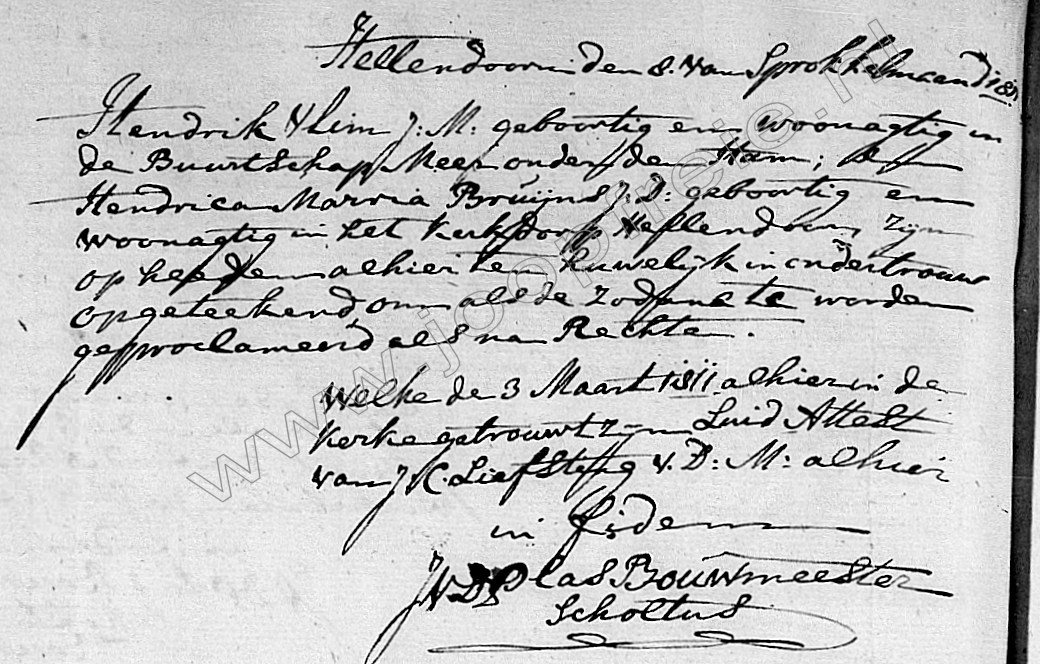 Hellendoorn den 8. van Sprokkelmaand 1811
Hendrik Klim J: M: geboortig en woonagtig in
de Buurtschap Meer onder den Ham; en
Hendrica Marria Bruijns J: D: geboortig en
woonagtig in het kerkdorp Hellendoorn, zijn
op heeden alhier ten huwelijk in ondertrouw
opgeteekend om als de zodane te worden
geproclameerd als na Rechte.
Welke de 3 Maart 1811 alhier in de
kerke getrouwt zijn Luid Attest
van J C. Liefsting V: D: M: alhier
in fidem
JVD Plas Bouwmeester
Scholtus
www.joopreie.nl